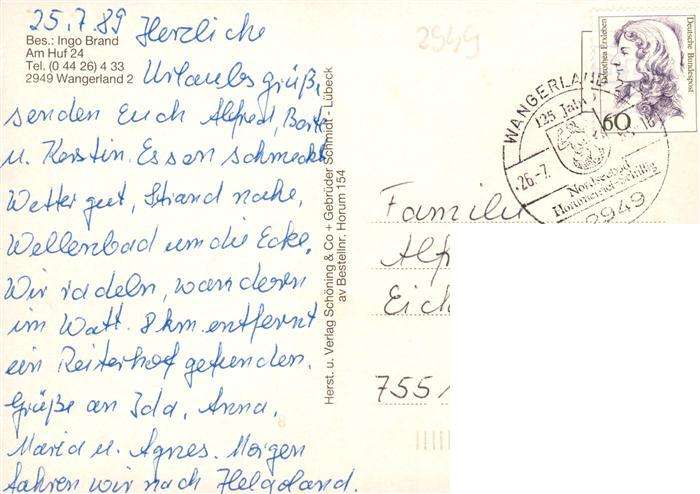 25.7.89 Herzliche
Bes.: Ingo Brand
Am Huf 24
Tel. (0 44 26) 4 33
2949 Wangerland 2
Urlaubsgrüße
senden Euch Alfred,
u. Kerstin. Essen schmeckt
Wetter gut, Strand nahe,
Wellenbad um die Ecke.
Wir radeln, wandern
im Watt. 8 km entfernt
ein Reiterhof gefunden.
Grüße an Ida, Anna,
Maria u. Agnes. Morgen
fahren wir nach Helgoland.
Herst. u. Verlag Schöning & Co + Gebrüder Schmidt - Lübeck
av Bestellnr. Horum 154
2949
Dorothea Erxleben
Deutsche Bundespost
60
WANGERLAND
125 Jahre
26.-7.
Nordseebad
Horumersiel-Schillig
2949
Familie
Alf
Eich
755